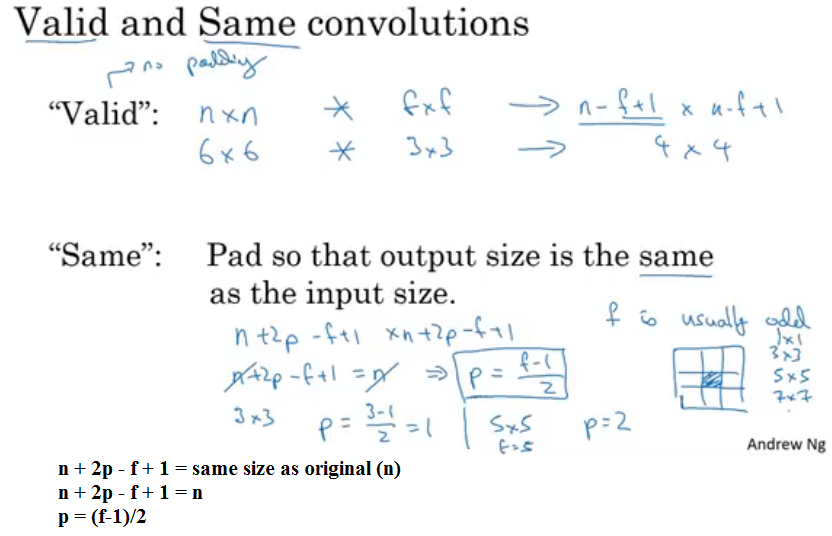 Valid and Same convolutions
→ no padding
“Valid”: n×n * f×f → n-f+1 × n-f+1
6×6 * 3×3 → 4 × 4
“Same”: Pad so that output size is the same
as the input size.
n+2p-f+1 × n+2p-f+1
n+2p-f+1 = n ⇒ p = (f-1)/2
3×3 p = (3-1)/2 = 1 | 5×5 p=2
f=5
f is usually odd
1×1
3×3
5×5
7×7
Andrew Ng
n + 2p - f + 1 = same size as original (n)
n + 2p - f + 1 = n
p = (f-1)/2